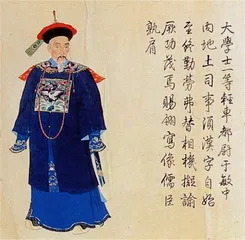 大學士一等輕車都尉于敏中
內地土司事須漢字自始
至終勤勞弗替相機擬諭
厥功茂焉賜翎寫像儒臣
孰屑